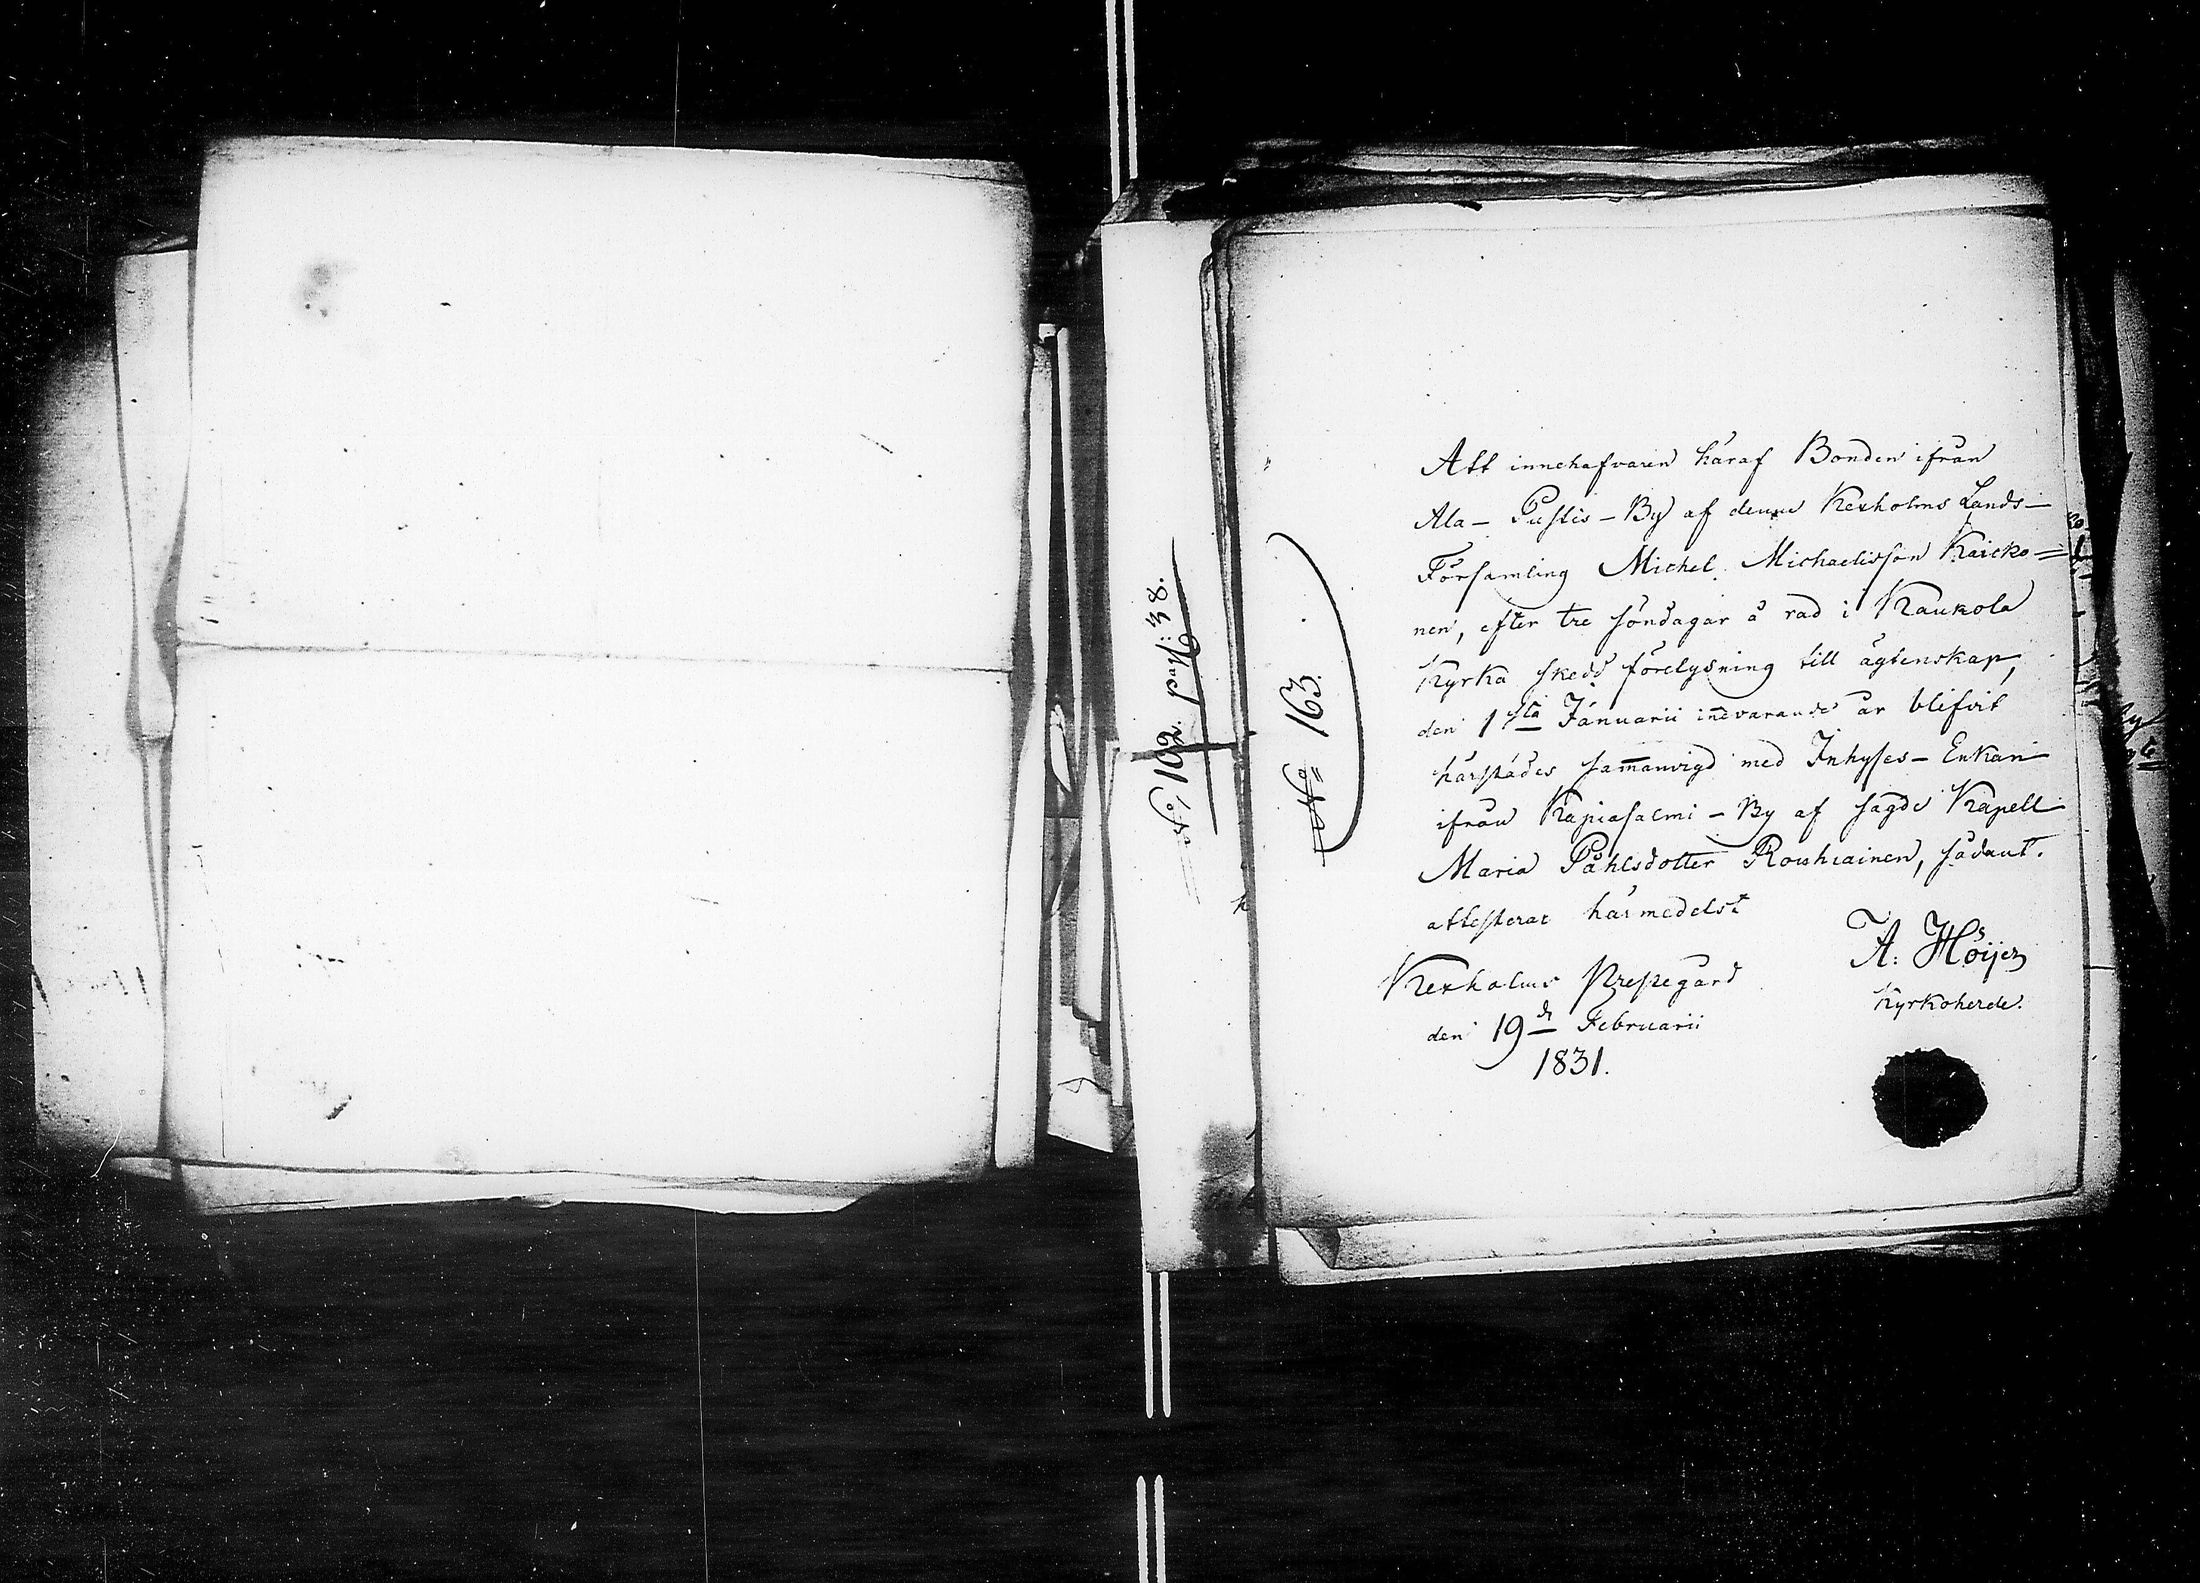 No 192. pag: 38.
No 163.
Att innehafvaren häraf Bonden ifrån
Ala - Pustis - By af denne Kexholms Lands-
Församling Michel Michaelisson Kaicko=
nen, efter tre söndagar å rad i Kaukola
Kyrka skedd förelysning till ägtenskap,
den 1sta Januarii innevarande år blifvit
härstädes sammanvigd med Inhyses - Enkan
ifrån Kapiasalmi - By af sagde Kapell
Maria Påhlsdotter Rouhiainen, sådant
attesterar härmedelst
A: Höijer
Kyrkoherde.
Kexholms Prestegård
den 19de Februarii
1831.